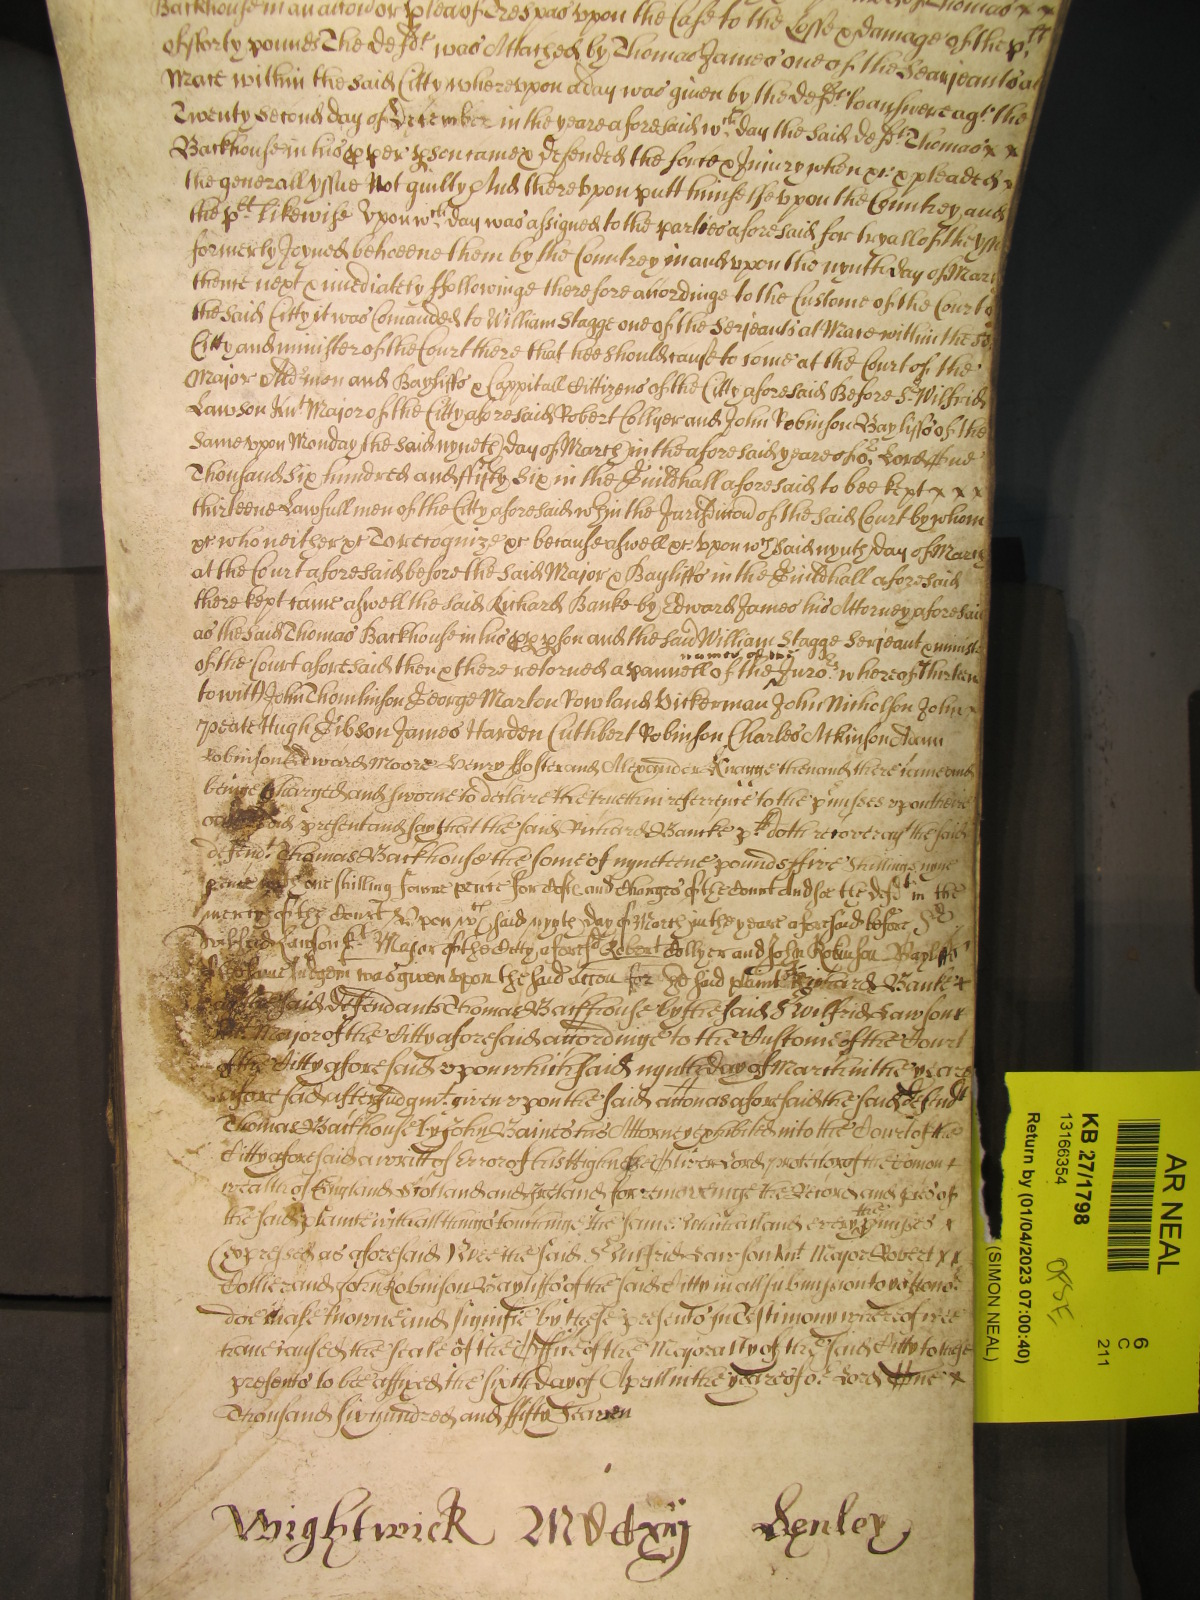 Backhouse in an accion or plea of Trespas upon the Case to the Losse x damage of the plt
of forty pounds The defdt was Attached by Thomas James one of the Searjeants at
Mace within the said Citty whereupon a day was given by the defdt to answere agt the
Twenty Second day of December in the yeare aforesaid wch day the said deft Thomas x x
Backhouse in his pper pson came x defended the force x Injury when xc x pleaded x
the generall yssue Not guilty And there upon putt himselfe upon the Countrey and
the plt likewise Upon wch day was assigned to the parties aforesaid for tryall of the yssue
formerly Joyned betweene them by the Countrey in and upon the nynth day of March
thence next x imediately ffollowinge therefore accordinge to the Custome of the Court of
the said Citty it was Comanded to William Stagge one of the Serjeants at Mace within the sd
Citty and minister of the Court there that hee should cause to come at the Court of the
Major Aldrmen and Bayliffs x Cappitall Cittizens of the Citty aforesaid Before Sr Wilfrid
Lawson Knt Major of the Citty aforesaid Robert Collyer and John Robinson Bayliffs of the
same upon Monday the said nyneth day of March in the aforesaid yeare of or Lord One
Thousand Six hundred and ffifty Six in the Guildhall aforesaid to bee kept x x x
thirteene Lawfull men of the Citty aforesaid wthin the Jurisdiccon of the said Court by whom
xc who neither xc To recognize xc because aswell xc Upon wch said nynth day of March
at the Court aforesaid before the said Major x Bayliffs in the Guildhall aforesaid
there kept came aswell the said Richard Banke by Edward James his Attorney aforesaid
as the said Thomas Backhouse in his pper pson and the said William Stagge Serjeant x minister
names of the
of the Court aforesaid then x there retorned a pannell of the Juros whereof Thirteen
to witt John Thomlinson George Marton Rowland Vickerman John Nicholson John x
Peate Hugh Gibson James Harden Cuthbert Robinson Charles Atkinson Adam
Robinson Edward Moore Henry ffoster and Alexander Knagge then and there came and
beinge Charged and sworne to declare the trueth in referrence to the pmisses upon their
oath said present and say that the said Richard Bancke plt doth recover agt the said
defendt Thomas Backhouse the some of nyneteene pounds ffive Shillings nyne
pence and one shilling fowre pence for Costs and Charges of the Court And soe the defdt in the
mercy of the Court Upon wch said nynth day of March in the yeare aforesaid before Sr
Wilfrid Lawson Kt Major of the Citty aforesd Robert Collyer and John Robinson Bayliffs
of the same Judgmt was given upon the said accon for the said plaint Richard Banke x
against said defendant Thomas Backhouse by the said Sr Wilfrid Lawson x
Knt Major of the Citty aforesaid accordinge to the Custome of the Court
of the Citty aforesaid upon which said nynth day of March in the yeare
aforesaid after Judgmt given upon the said accon as aforesaid the said defendt
Thomas Backhouse by John Baines his Attorney exhibited into the Court of the
Citty aforesaid a writt of Error of his Highnes Oliver Lord protector of the Comon x
wealth of England Scotland and Ireland for removeinge the Record and pces of
the
the said plainte with all things touchinge the same which all and every pmisses x
Expressed as aforesaid Wee the said Sr Wilfrid Lawson Knt Major Robert x x
Collier and John Robinson Bayliffs of the said Citty in all submission to yor honrs
doe make knowne and signifie by these presents In Testimony whereof wee
have caused the seale of the Office of the Majoralty of the said Citty to these
presents to bee affixed the sixth day of Aprill in the yeare of or Lord One x
Thousand six hundred and ffifty Seaven
Wightwick Mdcxij Lenley
AR NEAL
KB 27/1798
13166354
Return by (01/04/2023 07:00:40)
(SIMON NEAL)
6
C
211